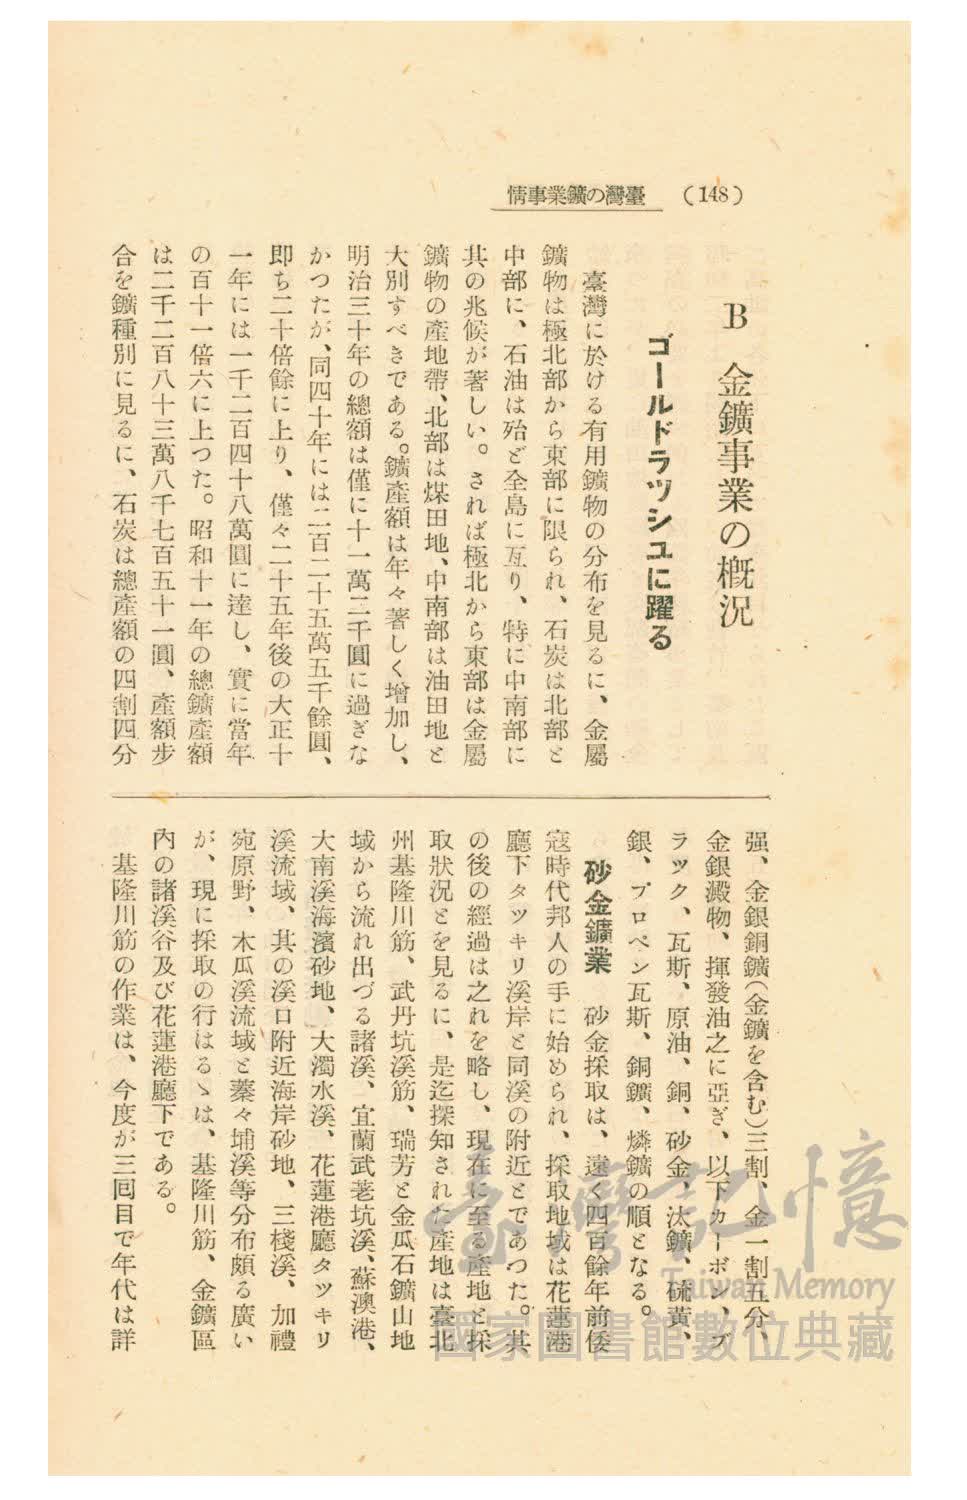 (148)
臺灣の鑛業事情
B 金鑛事業の槪況
ゴールドラツシユに躍る
臺灣に於ける有用鑛物の分布を見るに、金屬
鑛物は極北部から東部に限られ、石炭は北部と
中部に、石油は殆ど全島に亙り、特に中南部に
其の兆候が著しい。されば極北から東部は金屬
鑛物の產地帶、北部は煤田地、中南部は油田地と
大別すべきである。鑛產額は年々著しく增加し、
明治三十年の總額は僅に十一萬二千圓に過ぎな
かつたが、同四十年には二百二十五萬五千餘圓、
即ち二十倍餘に上り、僅々二十五年後の大正十
一年には一千二百四十八萬圓に達し、實に當年
の百十一倍六に上つた。昭和十一年の總鑛產額
は二千二百八十三萬八千七百五十一圓、產額步
合を鑛種別に見るに、石炭は總產額の四割四分
强、金銀銅鑛(金鑛を含む)三割、金一割五分、
金銀澱物、揮發油之に亞ぎ、以下カーボン、ブ
ラツク、瓦斯、原油、銅、砂金、汰鑛、硫黃、
銀、プロペン瓦斯、銅鑛、燐鑛の順となる。
砂金鑛業 砂金採取は、遠く四百餘年前倭
寇時代邦人の手に始められ、採取地域は花蓮港
廳下タツキリ溪岸と同溪の附近とであつた。其
の後の經過は之れを略し、現在に至る產地と採
取狀況とを見るに、是迄探知された產地は臺北
州基隆川筋、武丹坑溪筋、瑞芳と金瓜石鑛山地
域から流れ出づる諸溪、宜蘭武荖坑溪、蘇澳港、
大南溪海濱砂地、大濁水溪、花蓮港廳タツキリ
溪流域、其の溪口附近海岸砂地、三棧溪、加禮
宛原野、木瓜溪流域と蓁々埔溪等分布頗る廣い
が、現に採取の行はるゝは、基隆川筋、金鑛區
內の諸溪谷及び花蓮港廳下である。
基隆川筋の作業は、今度が三回目で年代は詳
臺灣記憶
Taiwan Memory
國家圖書館數位典藏